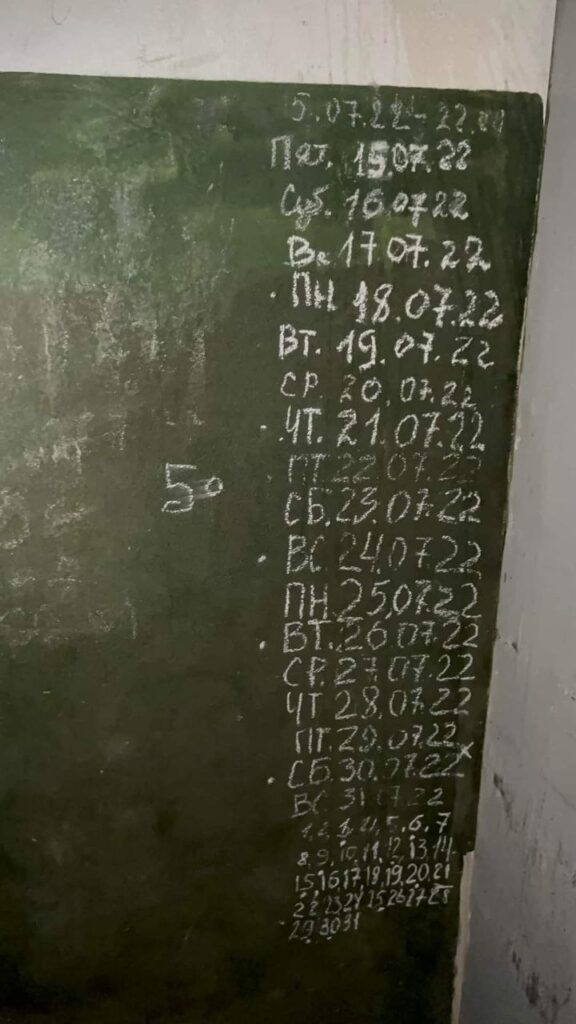 5.07.22- 22.
Пят. 15.07.22
Суб. 16.07.22
Вс 17.07.22
ПН 18.07.22
ВТ. 19.07.22
СР. 20.07.22
ЧТ. 21.07.22
ПТ 22 07.22
5
СБ. 23.07.22
ВС 24.07.22
ПН. 25.07.22
ВТ. 26.07.22
СР. 27.07.22
ЧТ 28.07.22
ПТ. 29.07.22
СБ. 30.07.22 x
ВС 31.07.22
1. 2. 3. 4. 5. 6. 7
8. 9. 10. 11. 12. 13. 14
15 16 17 18. 19. 20. 21
22 23 24 25 26 27 28
29 30 31